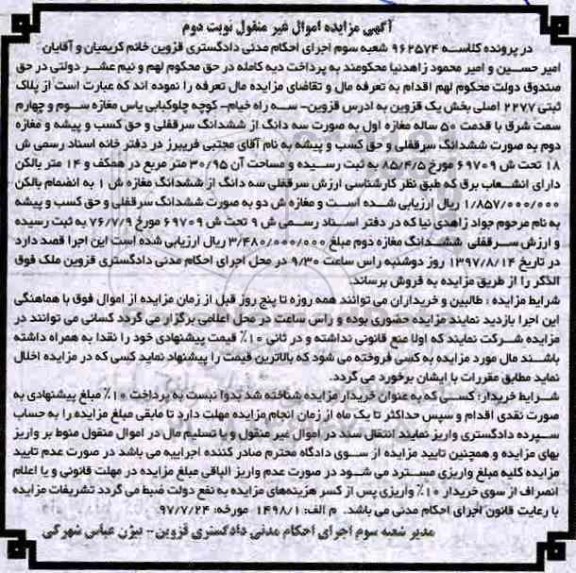 آگهی مزایده اموال غیر منقول نوبت دوم
در پرونده کلاسه ۹۶۲۵۷۴ شعبه سوم اجرای احکام مدنی دادگستری قزوین خانم کریمیان و آقایان
امیر حسین و امیر محمود زاهدنیا محکومند به پرداخت دیه کامله در حق محکوم لهم و نیم عشر دولتی در حق
صندوق دولت محکوم لهم اقدام به تعرفه مال و تقاضای مزایده مال تعرفه را نموده اند که عبارت است از پلاک
ثبتی ۲۲۷۷ اصلی بخش یک قزوین به ادرس قزوین- سه راه خیام- کوچه چلوکبابی یاس مغازه سوم و چهارم
سمت شرق با قدمت ۵۰ ساله مغازه اول به صورت سه دانگ از ششدانگ سرقفلی و حق کسب و پیشه و مغازه
دوم به صورت ششدانگ سرقفلی و حق کسب و پیشه به نام آقای مجتبی فریبرز در دفتر خانه اسناد رسمی ش
۱۸ تحت ش ۶۹۷۰۹ مورخ ۸۵/۴/۵ به ثبت رسیده و مساحت آن ۳۰/۹۵ متر مربع در همکف و ۱۴ متر بالکن
دارای انشعاب برق که طبق نظر کارشناسی ارزش سرقفلی سه دانگ از ششدانگ مغازه ش ۱ به انضمام بالکن
۱/۸۵۷/۰۰۰/۰۰۰ ریال ارزیابی شده است و مغازه ش دو به صورت ششدانگ سرقفلی و حق کسب و پیشه
به نام مرحوم جواد زاهدی نیا که در دفتر اسناد رسمی ش ۹ تحت ش ۶۹۷۰۹ مورخ ۷۶/۷/۹ به ثبت رسیده
و ارزش سرقفلی ششدانگ مغازه دوم مبلغ ۳/۴۸۰/۰۰۰/۰۰۰ ریال ارزیابی شده است این اجرا قصد دارد
در تاریخ ۱۳۹۷/۸/۱۴ روز دوشنبه راس ساعت ۹/۳۰ در محل اجرای احکام مدنی دادگستری قزوین ملک فوق
الذکر را از طریق مزایده به فروش برساند.
شرایط مزایده : طالبین و خریداران می توانند همه روزه تا پنج روز قبل از زمان مزایده از اموال فوق با هماهنگی
این اجرا بازدید نمایند مزایده حضوری بوده و راس ساعت در محل اعلامی برگزار می گردد کسانی می توانند در
مزایده شرکت نمایند که اولا منع قانونی نداشته و در ثانی ۱۰٪ قیمت پیشنهادی خود را نقدا به همراه داشته
باشند مال مورد مزایده به کسی فروخته می شود که بالاترین قیمت را پیشنهاد نماید کسی که در مزایده اخلال
نماید مطابق مقررات با ایشان برخورد می گردد.
شرایط خریدار: کسی که به عنوان خریدار مزایده شناخته شد بدوا نسبت به پرداخت ۱۰٪ مبلغ پیشنهادی به
صورت نقدی اقدام و سپس حداکثر تا یک ماه از زمان انجام مزایده مهلت دارد تا مابقی مبلغ مزایده را به حساب
سپرده دادگستری واریز نمایند انتقال سند در اموال غیر منقول و یا تسلیم مال در اموال منقول منوط بر واریز
بهای مزایده و همچنین تایید مزایده از سوی دادگاه محترم صادر کننده اجراییه می باشد در صورت عدم تایید
مزایده کلیه مبلغ واریزی مسترد می شود در صورت عدم واریز الباقی مبلغ مزایده در مهلت قانونی و یا اعلام
انصراف از سوی خریدار ۱۰٪ واریزی پس از کسر هزینه‌های مزایده به نفع دولت ضبط می گردد تشریفات مزایده
با رعایت قانون اجرای احکام مدنی می باشد. م الف: ۱۴۹۸/۱ مورخه: ۹۷/۷/۲۴
مدیر شعبه سوم اجرای احکام مدنی دادگستری قزوین- بیژن عباس شهرکی